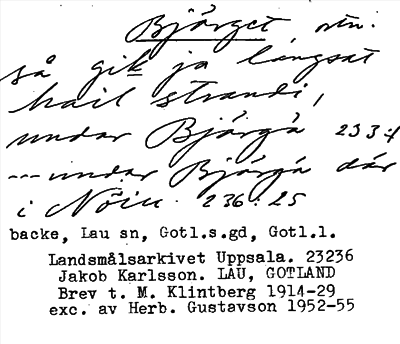 Bjärget, ortn.
så gik ja langsät
hail strandi,
undar Bjärgä 233:4
--- undar Bjärgä där
i Nöiu. 236:25
backe, Lau sn, Gotl.s.gd, Gotl.l.
Landsmålsarkivet Uppsala. 23236
Jakob Karlsson. LAU, GOTLAND
Brev t. M. Klintberg 1914-29
exc. av Herb. Gustavson 1952-55